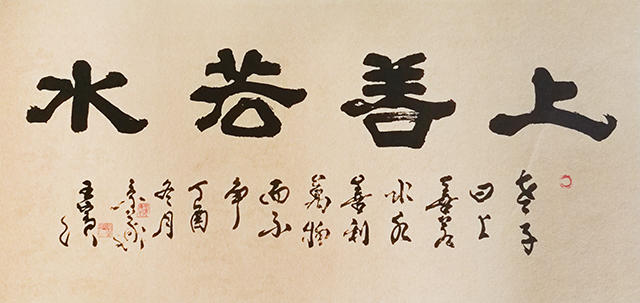 上善若水
老子
曰上
善若
水水
善利
萬物
而不
争
丁酉
冬月